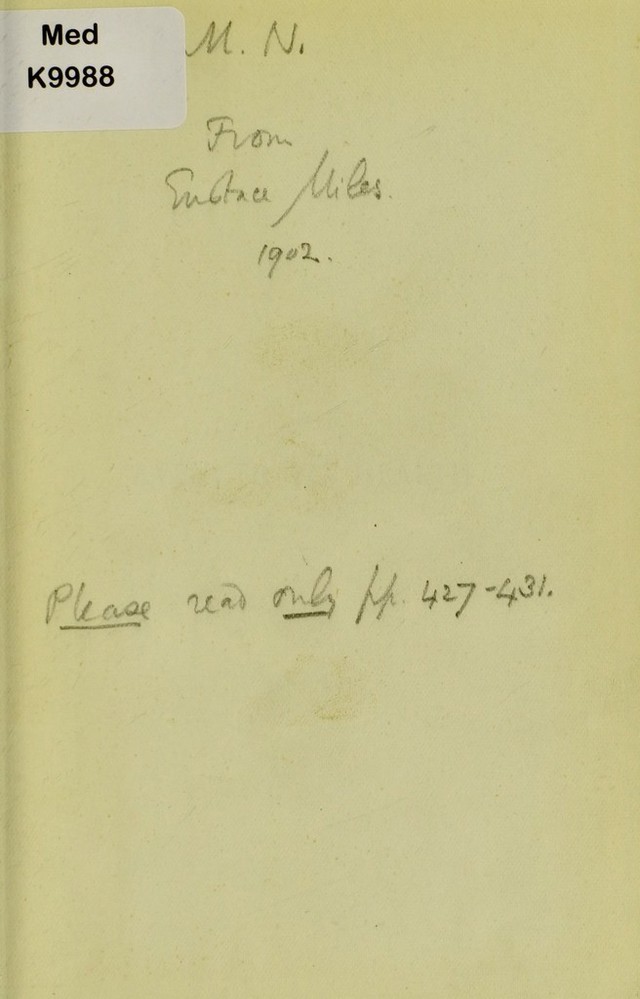 Med
K9988
M. N.
From
Eustace Miles.
1902.
Please read only pp. 427-431.